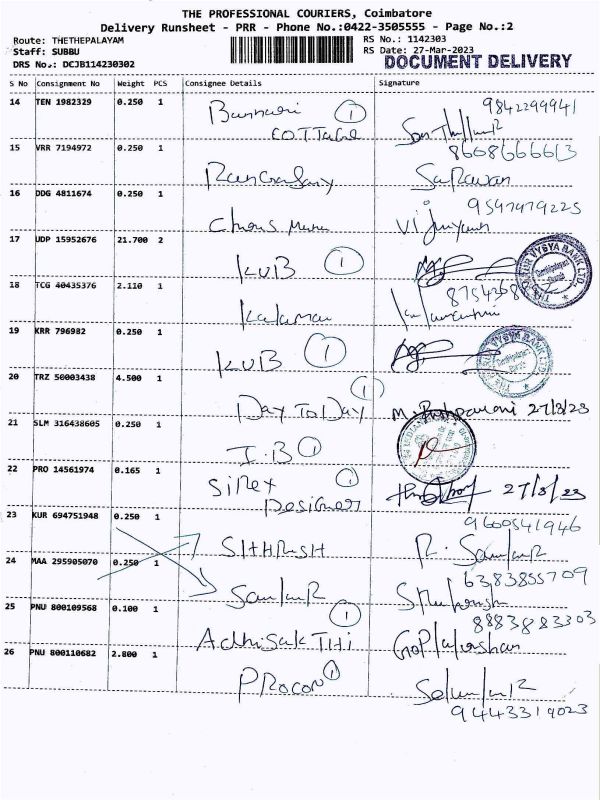 THE PROFESSIONAL COURIERS, Coimbatore
Delivery Runsheet - PRR - Phone No.:0422-3505555 - Page No.:2
Route: THETHEPALAYAM
RS No.: 1142303
Staff: SUBBU
RS Date: 27-Mar-2023
DRS No.: DCJB114230302
DOCUMENT DELIVERY
S No Consignment No Weight PCS Consignee Details Signature
14 TEN 1982329 0.250 1
Bannari 1
COTTAGE
9842299941
15 VRR 7194972 0.250 1
8608666613
Sarawan
16 DDG 4811674 0.250 1
9547979225
17 UDP 15952676 21.700 2
KVB 1
THE KARUR VYSYA BANK LTD.
18 TCG 40435376 2.110 1
19 KRR 796982 0.250 1
KVB 1
20 TRZ 50003438 4.500 1
1
DAY TO DAY
27/3/23
21 SLM 316438605 0.250 1
I.B 1
22 PRO 14561974 0.165 1
Sirex 1
Designer
27/3/23
23 KUR 694751948 0.250 1
9600541946
SITHRESH
24 MAA 295905070 0.250 1
6383855709
Sankar
25 PNU 800109568 0.100 1
1
8883883303
ADHISAKTHI
26 PNU 800110682 2.800 1
PROCON 1
9444331 9023